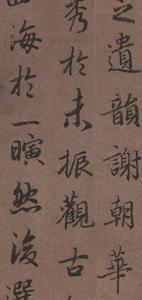 之遺韻謝朝華
秀於未振觀古
海於一瞚然後選